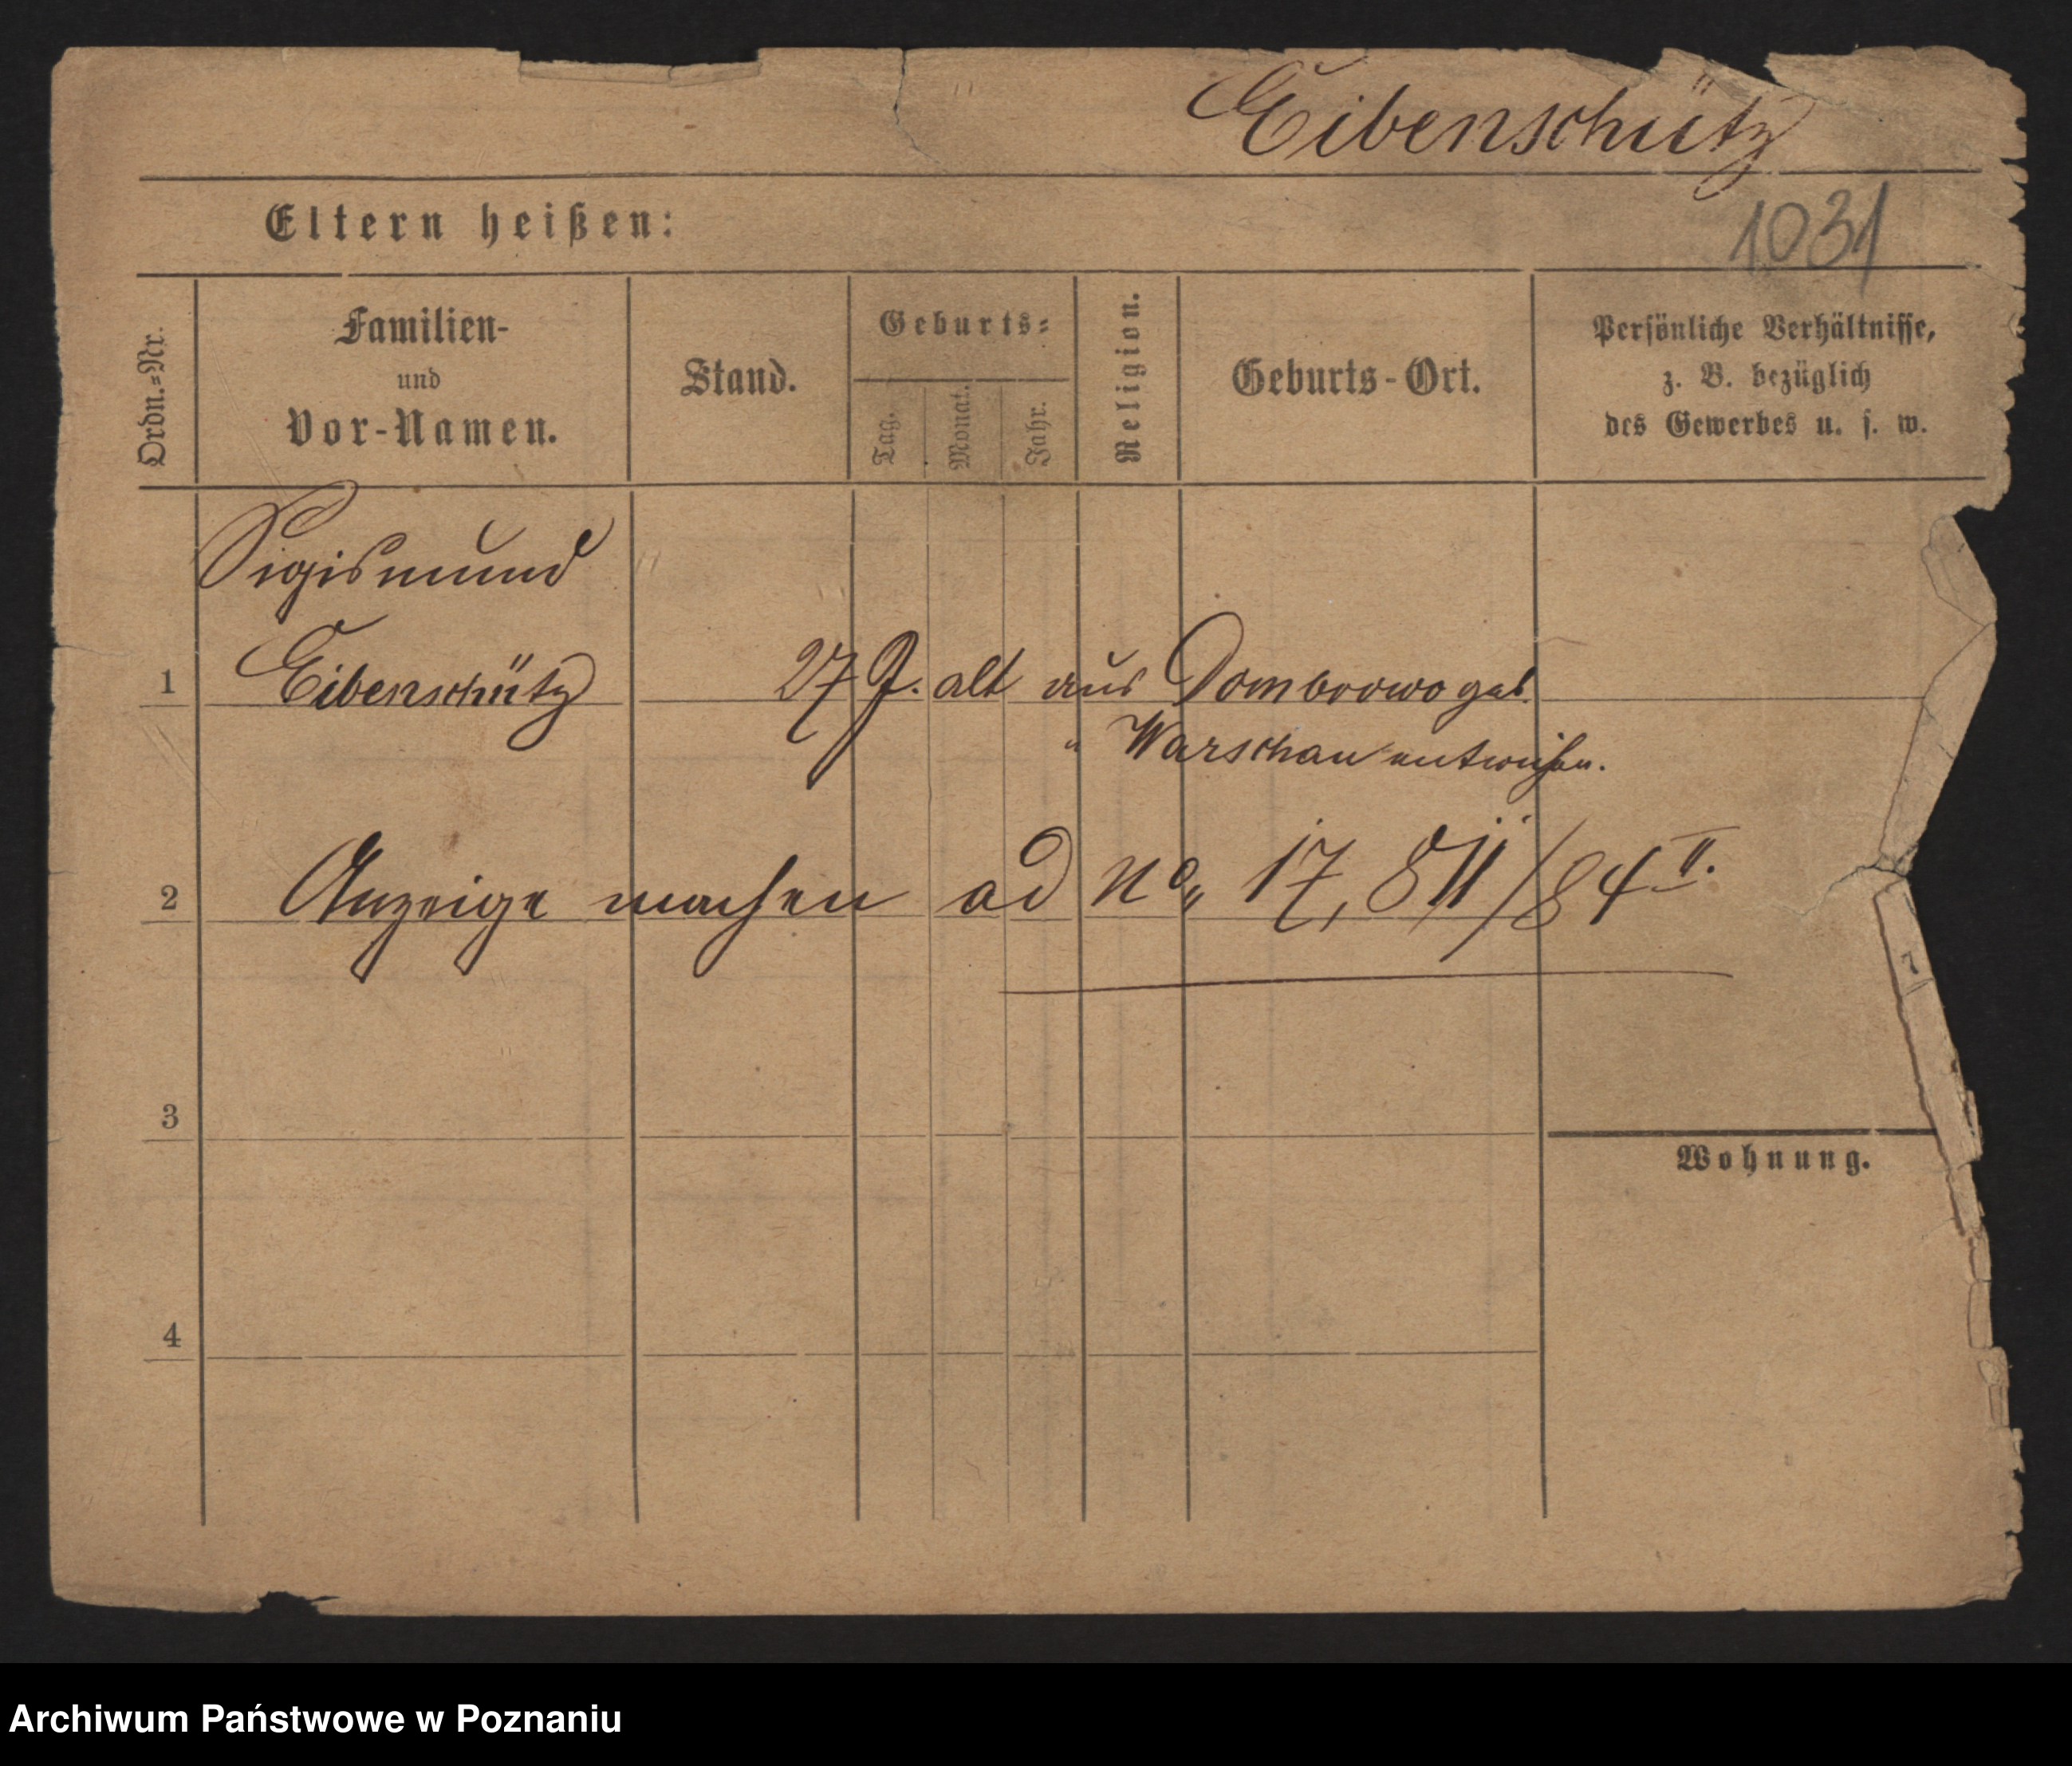 Eibenschütz
1031
Eltern heißen:
Ordn.=Nr.
Familien-
und
Vor-Namen.
Stand.
Geburts=
Tag.
Monat.
Jahr.
Religion.
Geburts-Ort.
Persönliche Verhältnisse,
z. B. bezüglich
des Gewerbes u. s. w.
Sigismund
1 Eibenschütz 27 J. alt aus Dombrowo geb.
" Warschau entwichen.
2 Anzeige machen ad No 17,811/84 II.
7
3
Wohnung.
4
Archiwum Państwowe w Poznaniu